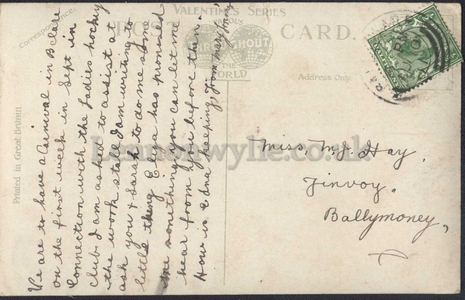 Valentine's Series
Famous
Throughout
the
World
CARD.
Correspondence.
Address Only
Printed in Great Britain
We are to have a Carnival in B'clare
on the first week in Sept in
connection with the Ladies hockey
club. I am asked to assist at
the work stall. I am writing to
ask you & Sarah to do me some
little thing Edna has promised
me something. You can let me
hear from you before then.
How is Edna keeping.
Miss M. J. Hay,
Finvoy,
Ballymoney,
Lennonwylie.co.uk